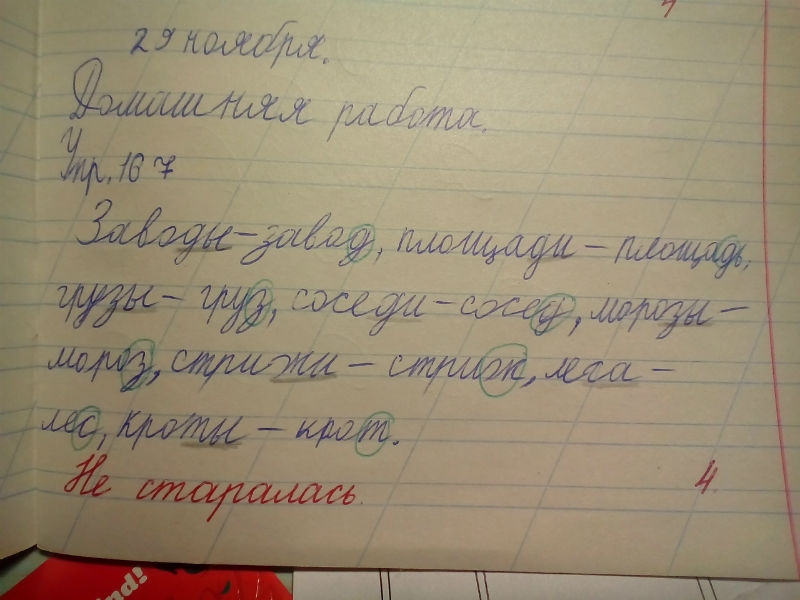 29 ноября.
Домашняя работа.
Упр. 167
Заводы – завод, площади – площадь,
грузы – груз, соседи – сосед, морозы –
мороз, стрижи – стриж, леса –
лес, кроты – крот.
Не старалась. 4
nd!